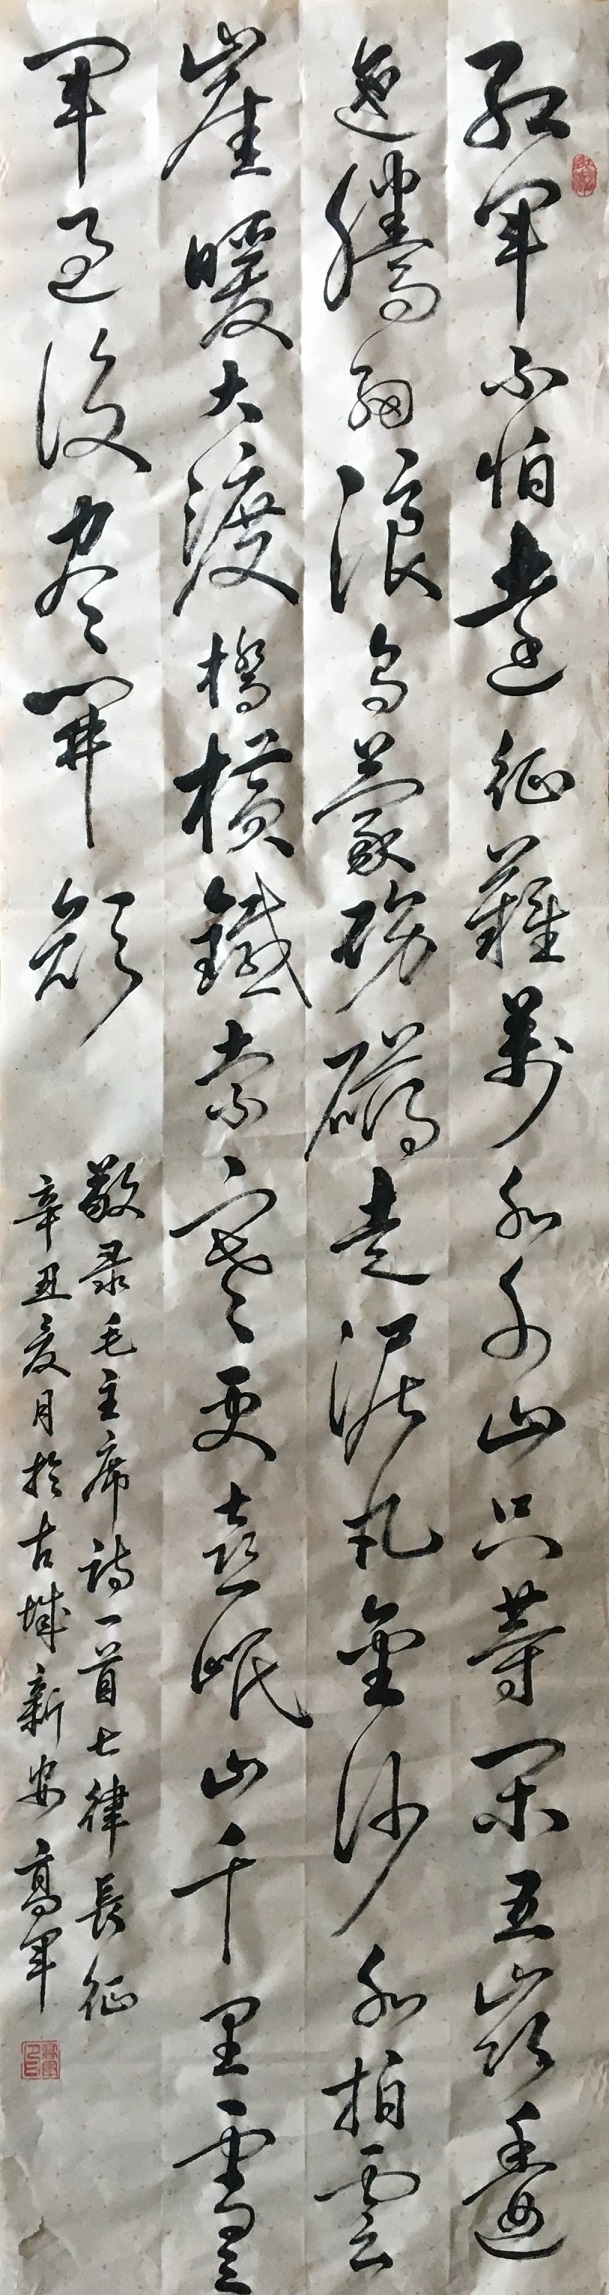 红军不怕遠征難萬水千山只等闲五嶺逶
迤腾细浪乌蒙磅礴走泥丸金沙水拍雲
崖暖大渡橋横鐵索寒更喜岷山千里雪三
军过後尽開颜
敬录毛主席诗一首七律長征
辛丑夏月於古城新安高军